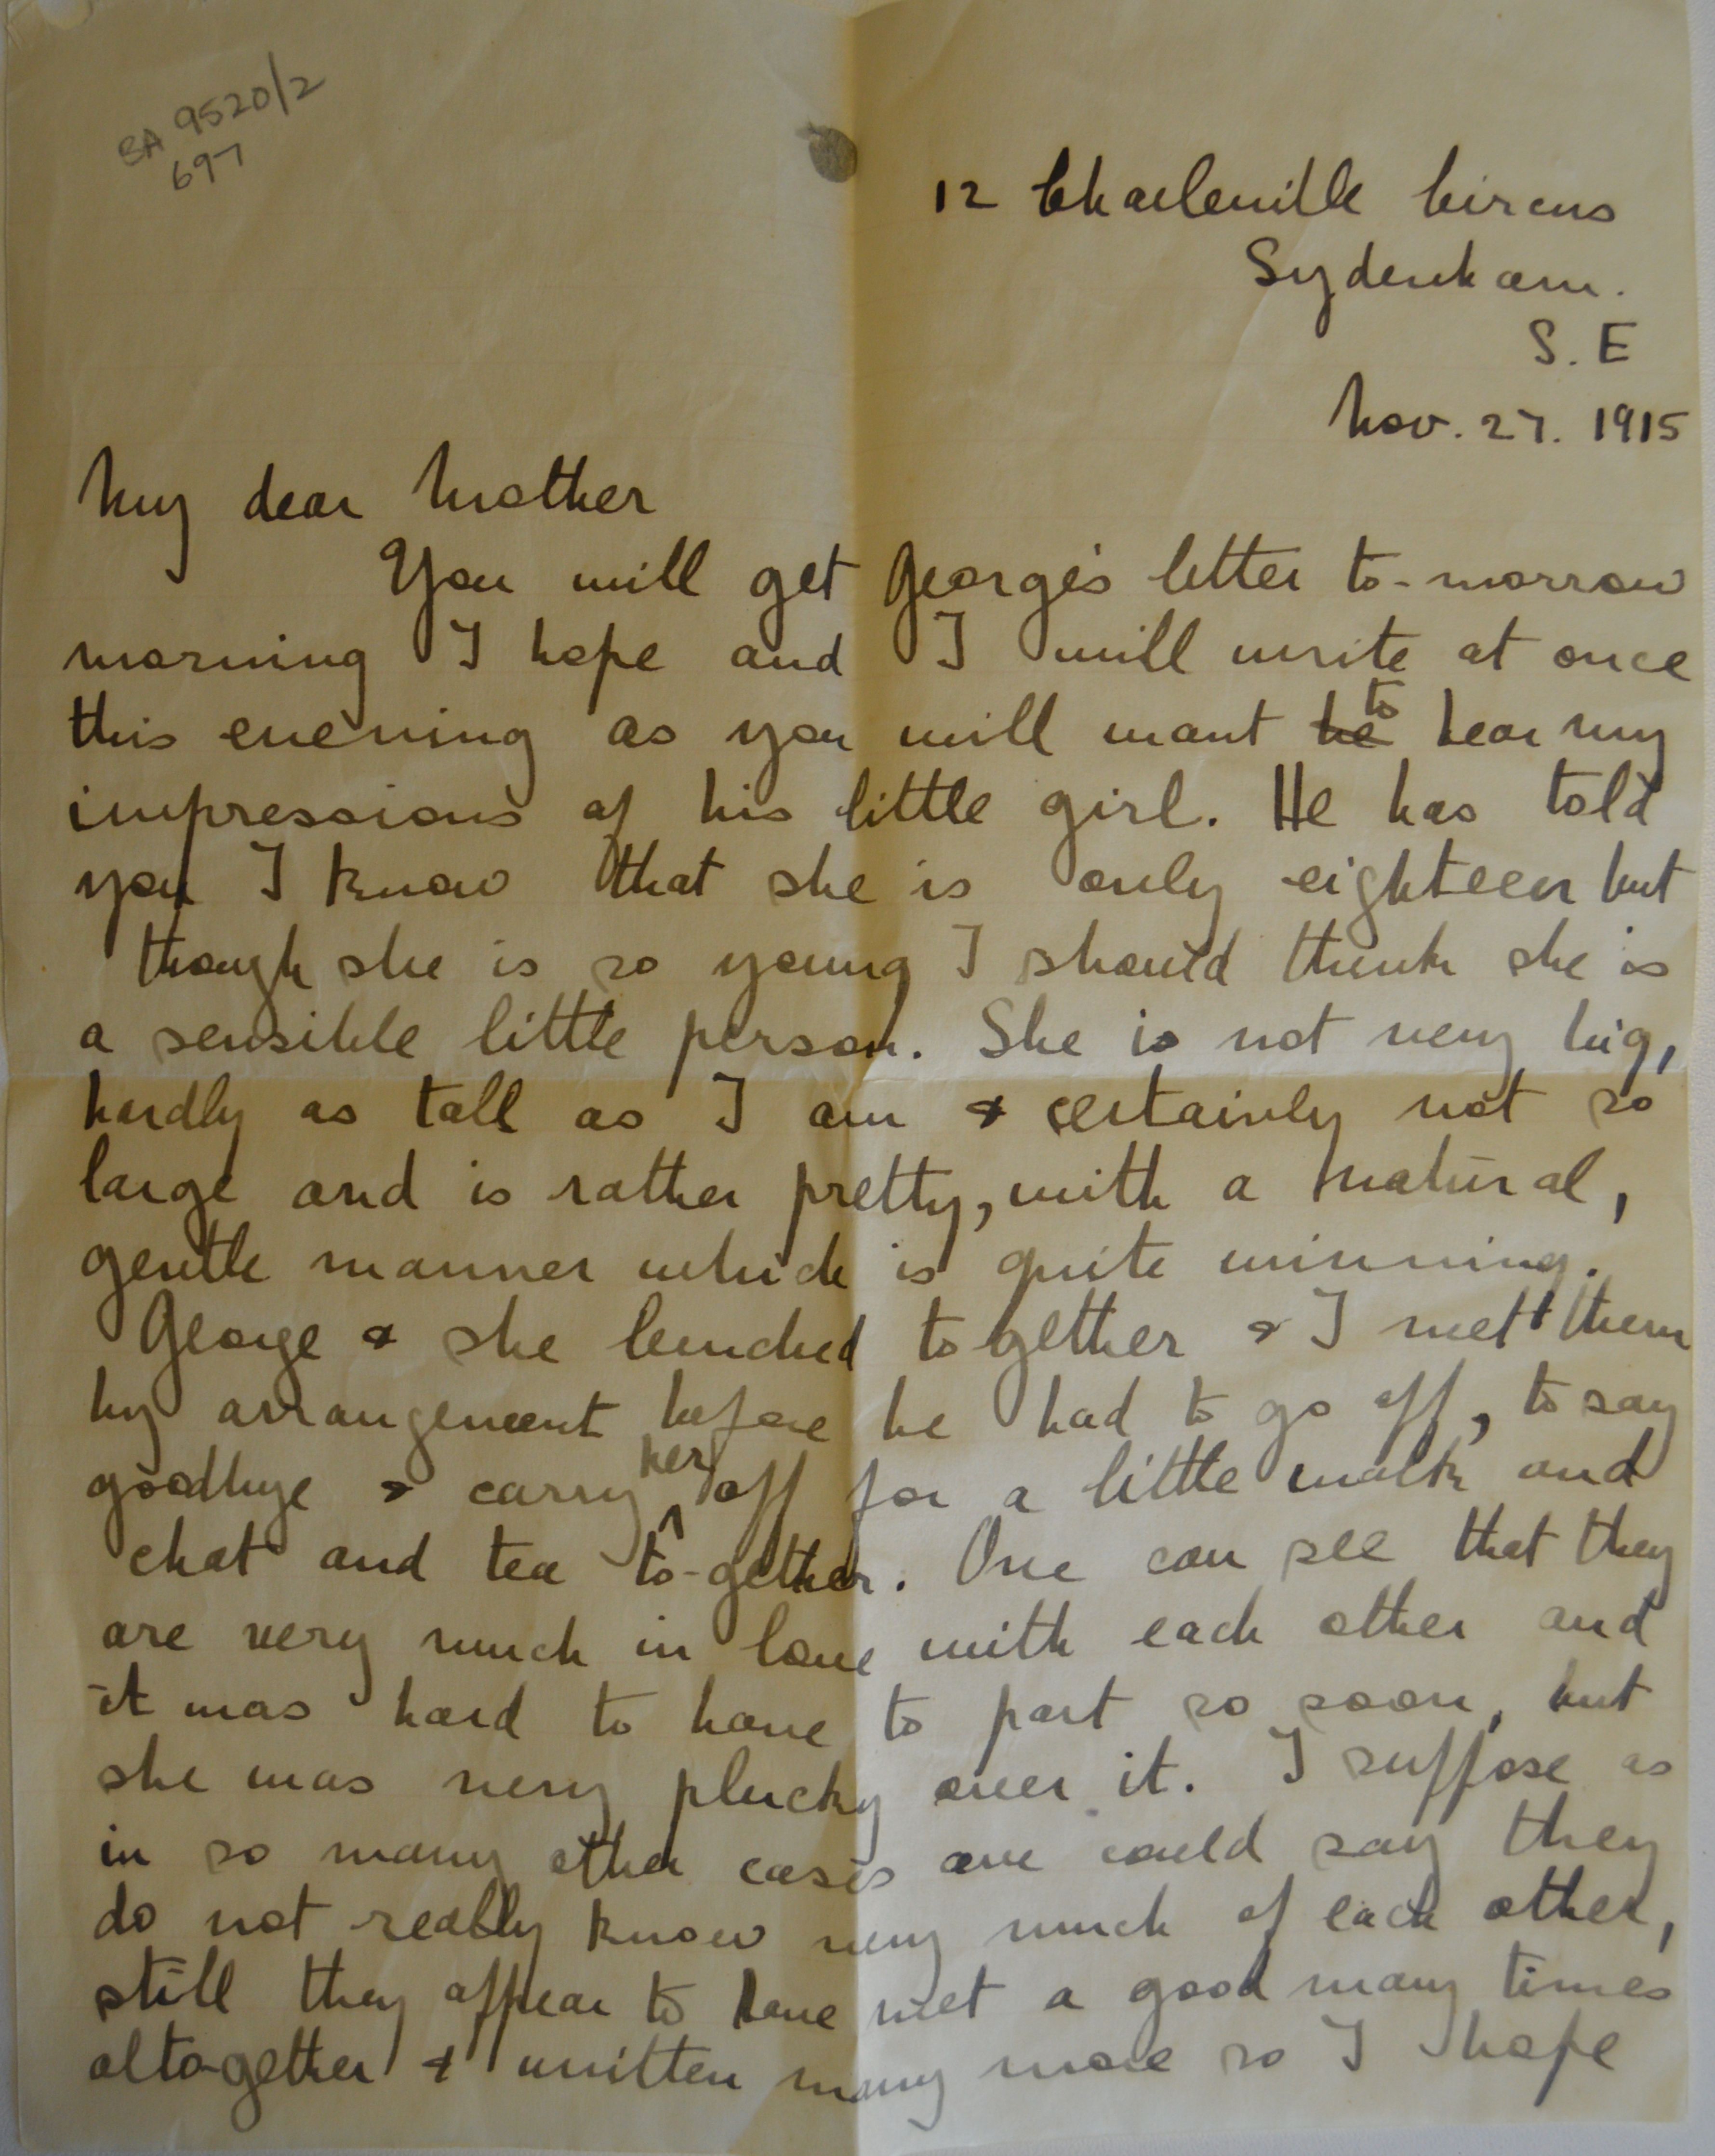 SA 9520/2
697
12 Charleville Circus
Sydenham.
S. E
Nov. 27. 1915
My dear Mother
You will get George's letter to-morrow
morning I hope and I will write at once
this evening as you will want he to hear my
impressions of his little girl. He has told
you I know that she is only eighteen but
though she is so young I should think she is
a sensible little person. She is not very big,
hardly as tall as I am & certainly not so
large and is rather pretty, with a natural,
gentle manner which is quite winning.
George & she lunched together & I met them
by arrangement before he had to go off, to say
goodbye & carry her off for a little walk and
chat and tea to-gether. One can see that they
are very much in love with each other and
it was hard to have to part so soon, but
she was very plucky over it. I suppose as
in so many other cases one could say they
do not really know very much of each other,
still they appear to have met a good many times
alto-gether & written many more so I hope